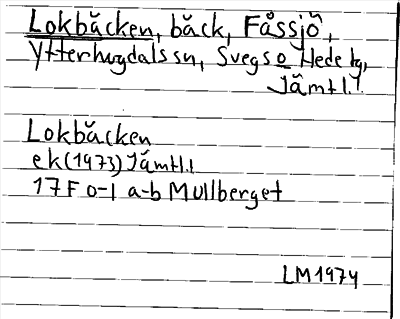 Lokbäcken, bäck, Fåssjö,
Ytterhogdals sn, Svegs o Hede tg,
Jämtl.!
Lokbäcken
ek (1973) Jämtl.!
17F o-l a-b Mullberget
LM 1974